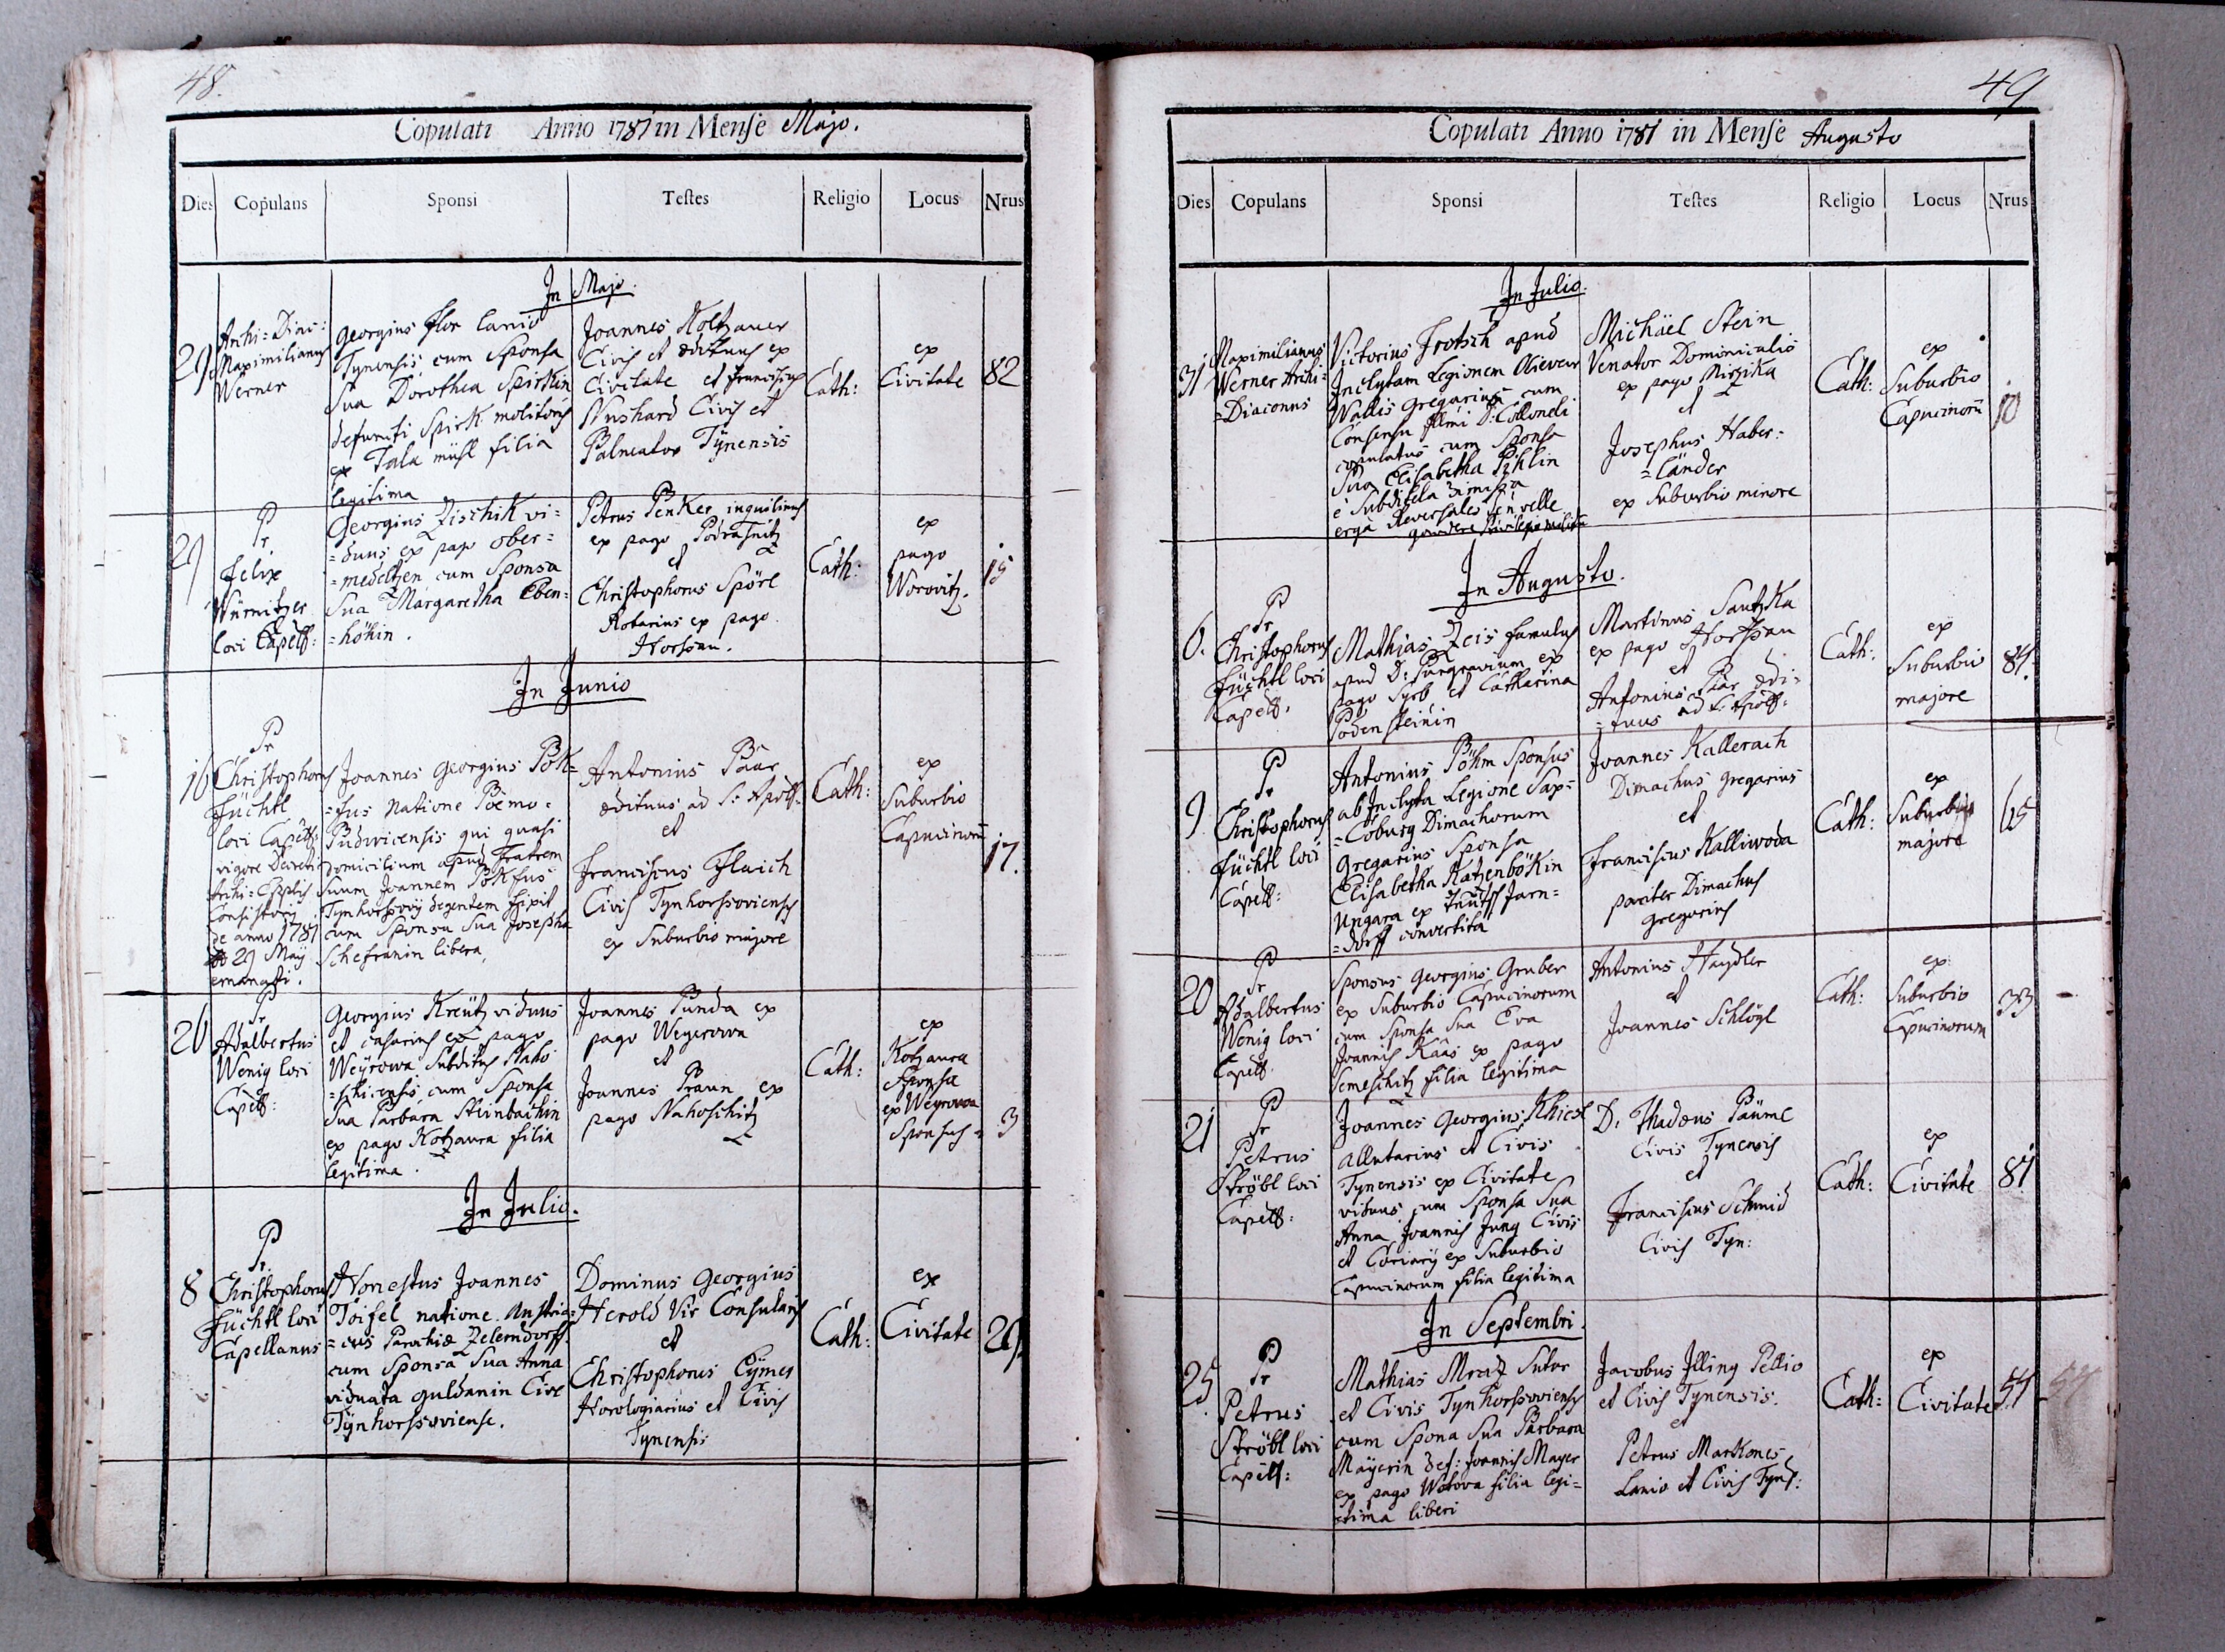 48.
Copulati Anno 1781 in Mense Majo.
Dies Copulans Sponsi Testes Religio Locus Nrus
In Majo.
29 Archi=Diac:
Maximilianus
Werner
Georgius Flor lanio
Tynensis cum Sponsa
Sua Dorothea Spirkin
defuncti Spirk molitoris
ex Tala mühl filia
legitima
Joannes Holtzauer
Civis et ædituus ex
Civitate et Franciscus
Wushard Civis et
Balneator Tÿnensis
Cath:
ex
Civitate
82
29
P
Fr
Felix
Würnitzer
loci Capell:
Georgius Zischik vi=
=duus ex pago ober=
=medeltzen cum Sponsa
Sua Margaretha Eben=
=höhin.
Petrus Penker inquilinus
ex pago Podrasnitz
et
Christophorus Spörl
Rotarius ex pago
Horssau.
Cath:
ex
pago
Worovitz.
15
In Junio
16
P
Fr
Christophorus
Füchtl
loci Capell:
vigore Decreti
Archi=Eppalis
Consistorij
de anno 1781
29 Maÿ
emanati.
Joannes Georgius Pök=
=fus Natione Boemo.
Budwicensis qui quasi
Domicilium apud Fratrem
Suum Joannem Pökfus
Tynhorssovij degentem fixit
cum Sponsa Sua Josepha
Schefranin libera
Antonius Päär
ædituus ad S: Apoll:
et
Franciscus Fluich
Civis Tynhorssoviensis
ex Suburbio majore
Cath:
ex
Suburbio
Capucinorū
17.
26
P
Fr
Adalbertus
Wenig loci
Capell:
Georgius Kreütz viduus
et casarius ex pago
Weÿrowa Subditus Naho=
=schicensis cum Sponsa
Sua Barbara Steinbachin
ex pago Kotzaura filia
legitima.
Joannes Punda ex
pago Weyerowa
et
Joannes Praun ex
pago Nahoschitz
Cath:
ex
Kotzaura
Sponsa
ex Weyrowa
Sponsus
3
In Julio.
8
P
Fr.
Christophorus
Füchtl loci
Capellanus
Honestus Joannes
Toifel natione Austria=
=cus Parochiæ Zelerndorff
cum Sponsa Sua Anna
viduata Guldanin Cive
Tÿnhorssoviense.
Dominus Georgius
Herold Vir Consularis
et
Christophorus Eÿmer
Horologiarius et Civis
Tynensis
Cath:
ex
Civitate
29.
49
Copulati Anno 1781 in Mense Augusto
Dies Copulans Sponsi Testes Religio Locus Nrus
In Julio.
31
Maximilianus
Werner Archi=
=Diaconus
Victorius Frotsch apud
Inclytam Legionem Olivier
Wallis gregarius cum
Consensu Illmi D: Collonelli
copulatus cum Sponsa
Sua Elisabetha Pihlin
è Subditela dimissa
erga Reversales se velle
gaudere
Michäel Stein
Venator Dominicalis
ex pago Mirzika
et
Josephus Haber=
=länder
ex Suburbio minore
Cath:
ex
Suburbio
Capucinorū
10
In Augusto.
6.
P
Fr
Christophorus
Füchtl loci
Capell:
Mathias Zeis famulus
apud D: Purgravium ex
pago Syrb et Catharina
Podensteinin
Martinus Sautzka
ex pago Horssau
et
Antonius Päär ædi=
=tuus ad S: Apoll:
Cath:
ex
Suburbio
majore
84.
9
P
Fr
Christophorus
Füchtl loci
Capell:
Antonius Böhm Sponsus
ab Inclyta Legione Sax=
=Coburg Dimachorum
Gregarius Sponsa
Elisabetha Katzenbökin
Ungara ex Teütsch Jarn=
=dorff convertita
Joannes Kallerach
Dimachus gregarius
et
Franciscus Kalliwoda
pariter Dimachus
gregarius
Cath:
ex
Suburbio
majore
65
20
P
Fr
Adalbertus
Wenig loci
Capell:
Sponsus Georgius Gruber
ex Suburbio Capucinorum
cum Sponsa Sua Eva
Joannis Kaas ex pago
Semeschitz filia legitima
Antonius Haydler
et
Joannes Schlögl
Cath:
ex
Suburbio
Capucinorum
33
21
P
Fr
Petrus
Ströbl loci
Capell:
Joannes Georgius Khiesl
Allutarius et Civis
Tynensis ex Civitate
viduus cum Sponsa Sua
Anna Joannis Jung Civis
et Coriarÿ ex Suburbio
Capucinorum filia legitima
D. Thadæus Päüml
Civis Tynensis
et
Franciscus Schmid
Civis Tyn:
Cath:
ex
Civitate
81
In Septembri.
25.
P
Fr
Petrus
Ströbl loci
Capell:
Mathias Mratz Sutor
et Civis Tynhorssoviensis
cum Spona Sua Barbara
Maÿerin def: Joannis Mayer
ex pago Wotova filia legi=
=tima liberi
Jacobus Illing Pellio
et Civis Tynensis.
et
Petrus Markones
Lanio et Civis Tyns:
Cath:
ex
Civitate
54